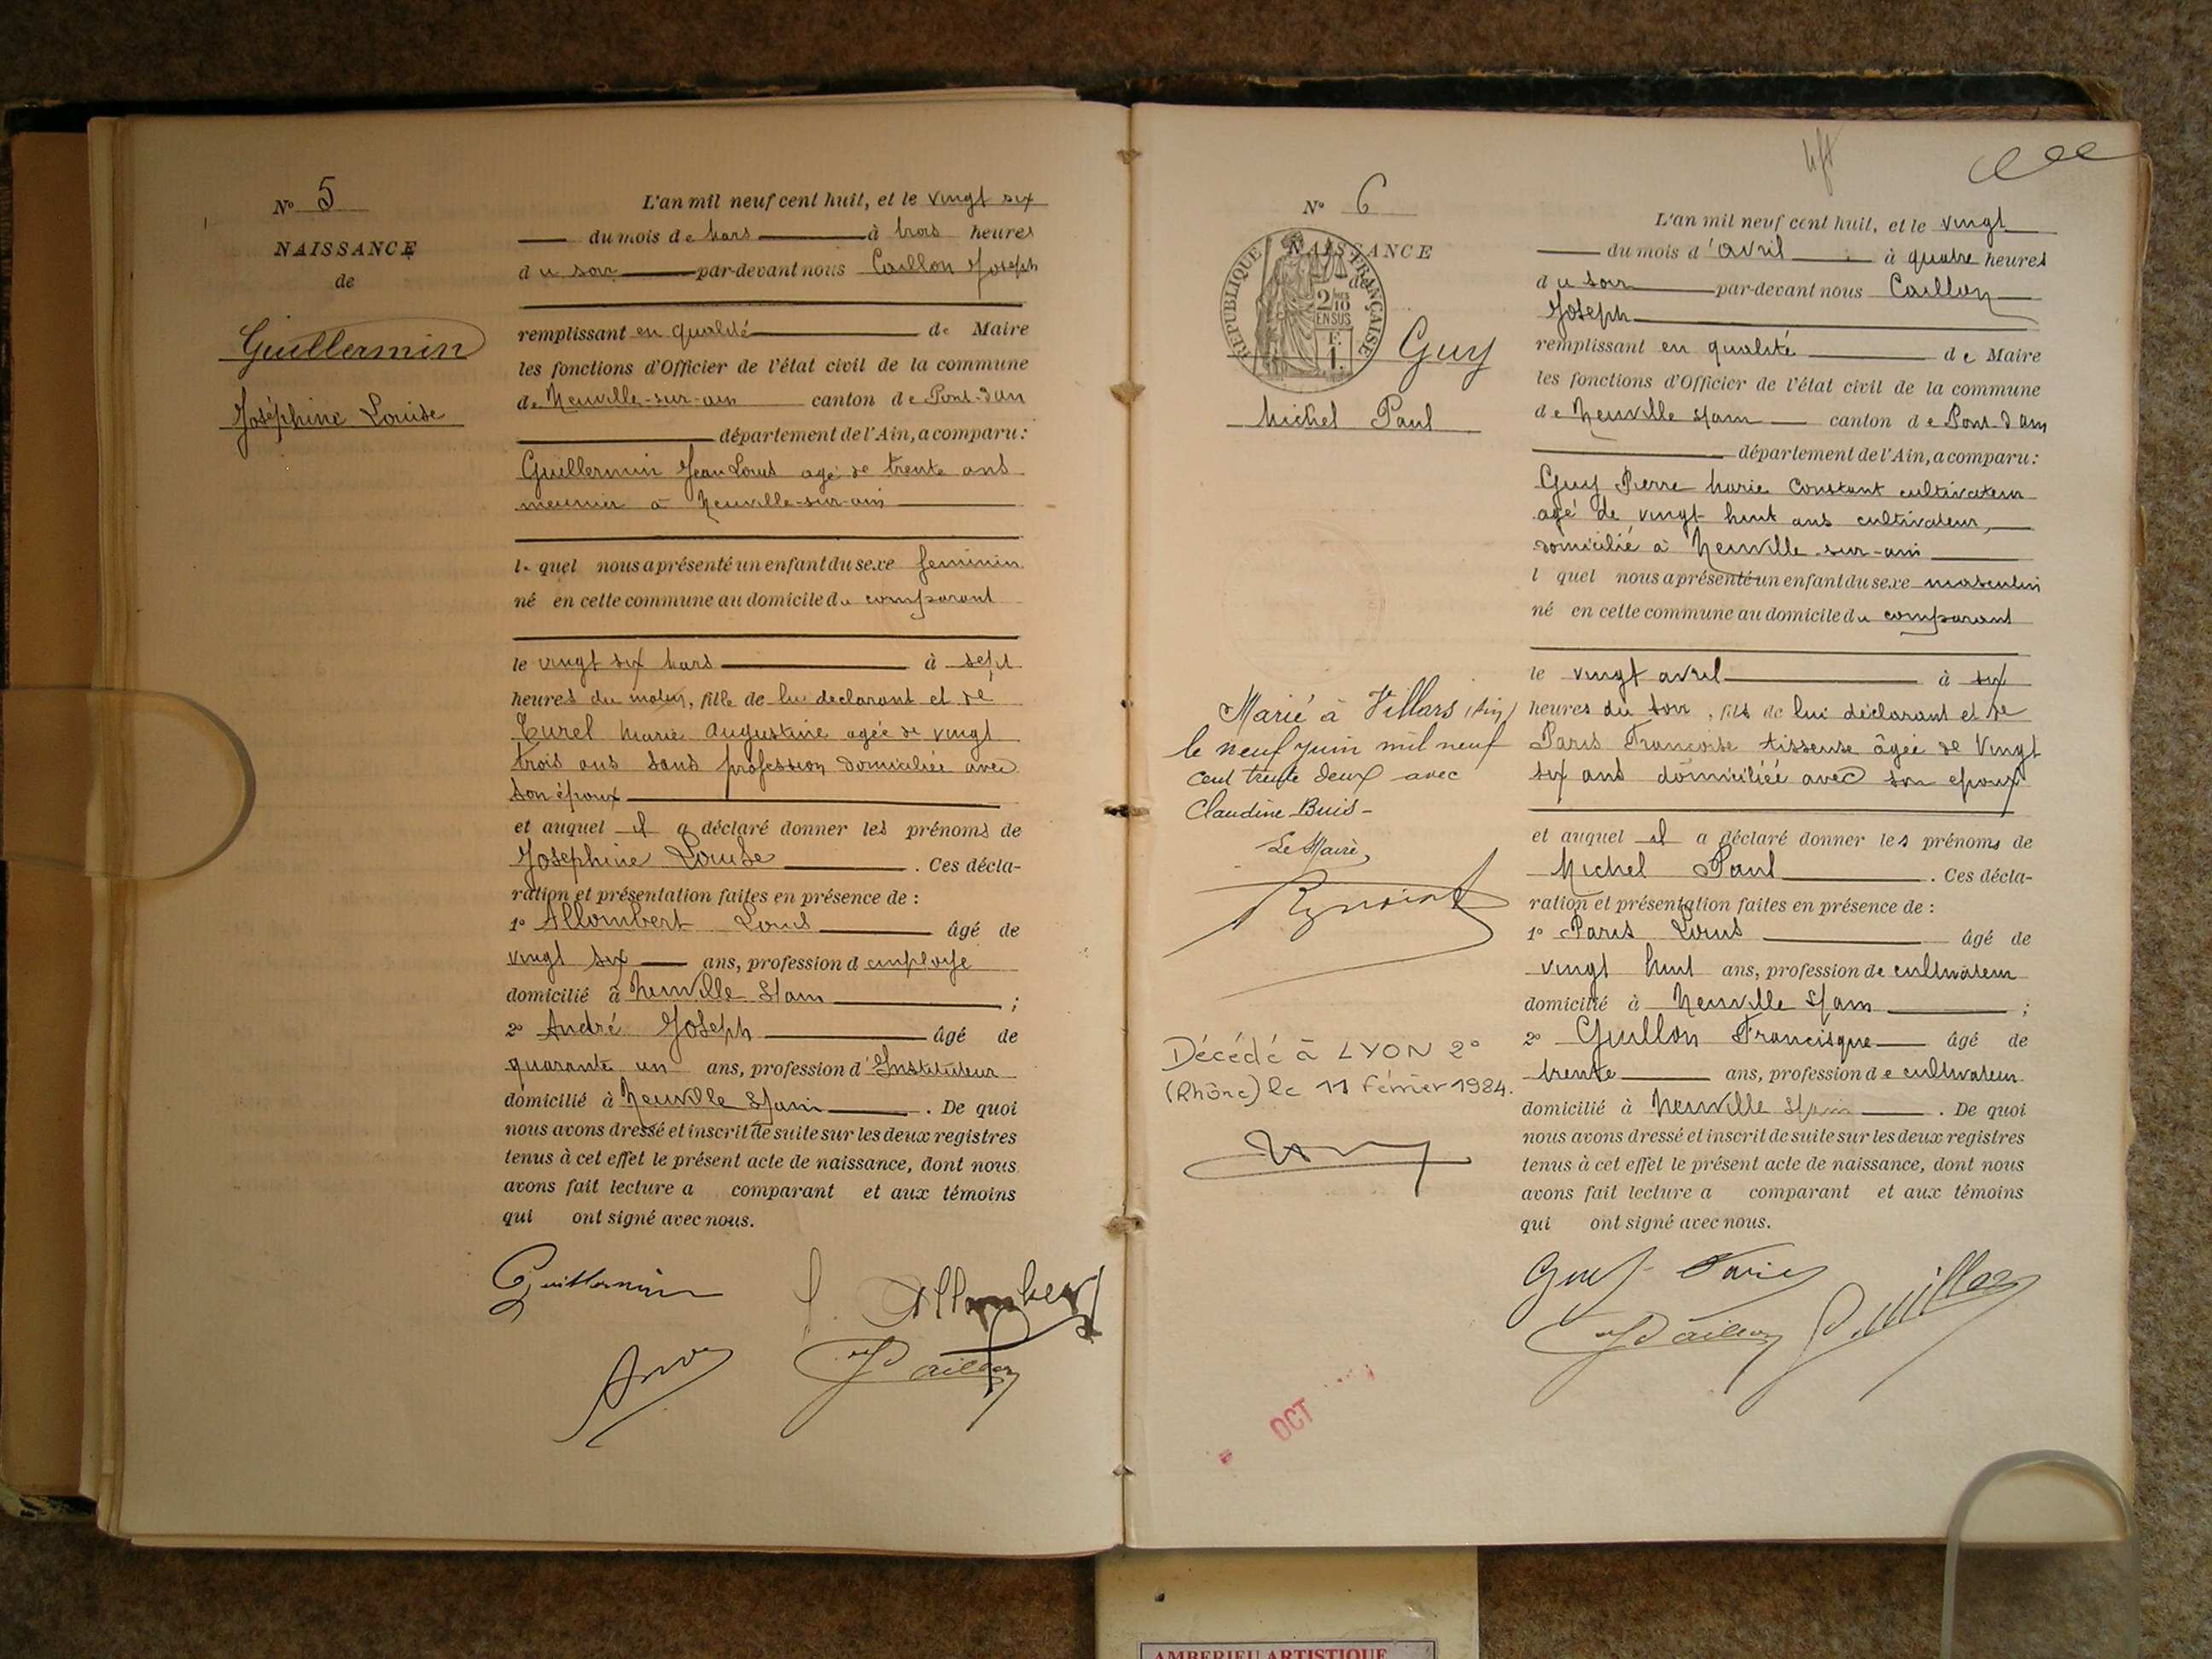 N° 5
NAISSANCE
de
Guillermin
Joséphine Louise
L'an mil neuf cent huit, et le vingt six
du mois de Mars à trois heures
du soir par-devant nous Caillon Joseph
remplissant en qualité de Maire
les fonctions d'Officier de l'état civil de la commune
de Neuville-sur-ain canton de Pont-d'ain
département de l'Ain, a comparu:
Guillermin Jean Louis agé de trente ans
meunier à Neuville-sur-ain
lequel nous a présenté un enfant du sexe feminin
né en cette commune au domicile du comparant
le vingt six Mars à sept
heures du matin, fille de lui declarant et de
Curel Marie Augustine agée de vingt
trois ans sans profession domiciliée avec
son époux
et auquel il a déclaré donner les prénoms de
Josephine Louise. Ces décla-
ration et présentation faites en présence de :
1° Allombert Louis âgé de
vingt six ans, profession d employé
domicilié à Neuville s/ain ;
2° André Joseph âgé de
quarante un ans, profession d'Instituteur
domicilié à Neuville s/ain. De quoi
nous avons dressé et inscrit de suite sur les deux registres
tenus à cet effet le présent acte de naissance, dont nous
avons fait lecture a comparant et aux témoins
qui ont signé avec nous.
Guillermin
L. Allombert
André
Caillon
N° 6
NAISSANCE
de
REPUBLIQUE FRANÇAISE
2/10
EN SUS
F.
1.
Guy
Michel Paul
Marié à Villars (Ain)
le neuf juin mil neuf
cent trente deux avec
Claudine Buis-
Le Maire,
Décédé à LYON 2°
(Rhône) le 11 Février 1984.
OCT
L'an mil neuf cent huit, et le vingt
du mois d'avril à quatre heures
du soir par-devant nous Caillon
Joseph
remplissant en qualité de Maire
les fonctions d'Officier de l'état civil de la commune
de Neuville s/ain canton de Pont d'ain
département de l'Ain, a comparu:
Guy Pierre Marie Constant cultivateur
agé de vingt huit ans cultivateur,
domicilié à Neuville-sur-ain
l quel nous a présenté un enfant du sexe masculin
né en cette commune au domicile du comparant
le vingt avril à six
heures du soir, fils de lui déclarant et de
Paris Françoise tisseuse âgée de Vingt
six ans domiciliée avec son epoux
et auquel il a déclaré donner les prénoms de
Michel Paul. Ces décla-
ration et présentation faites en présence de :
1° Paris Louis âgé de
vingt huit ans, profession de cultivateur
domicilié à Neuville s/ain ;
2° Guillon Francisque âgé de
trente ans, profession de cultivateur
domicilié à Neuville s/ain. De quoi
nous avons dressé et inscrit de suite sur les deux registres
tenus à cet effet le présent acte de naissance, dont nous
avons fait lecture a comparant et aux témoins
qui ont signé avec nous.
Guy Paris
Caillon Guillon
AMBERIEU ARTISTIQUE